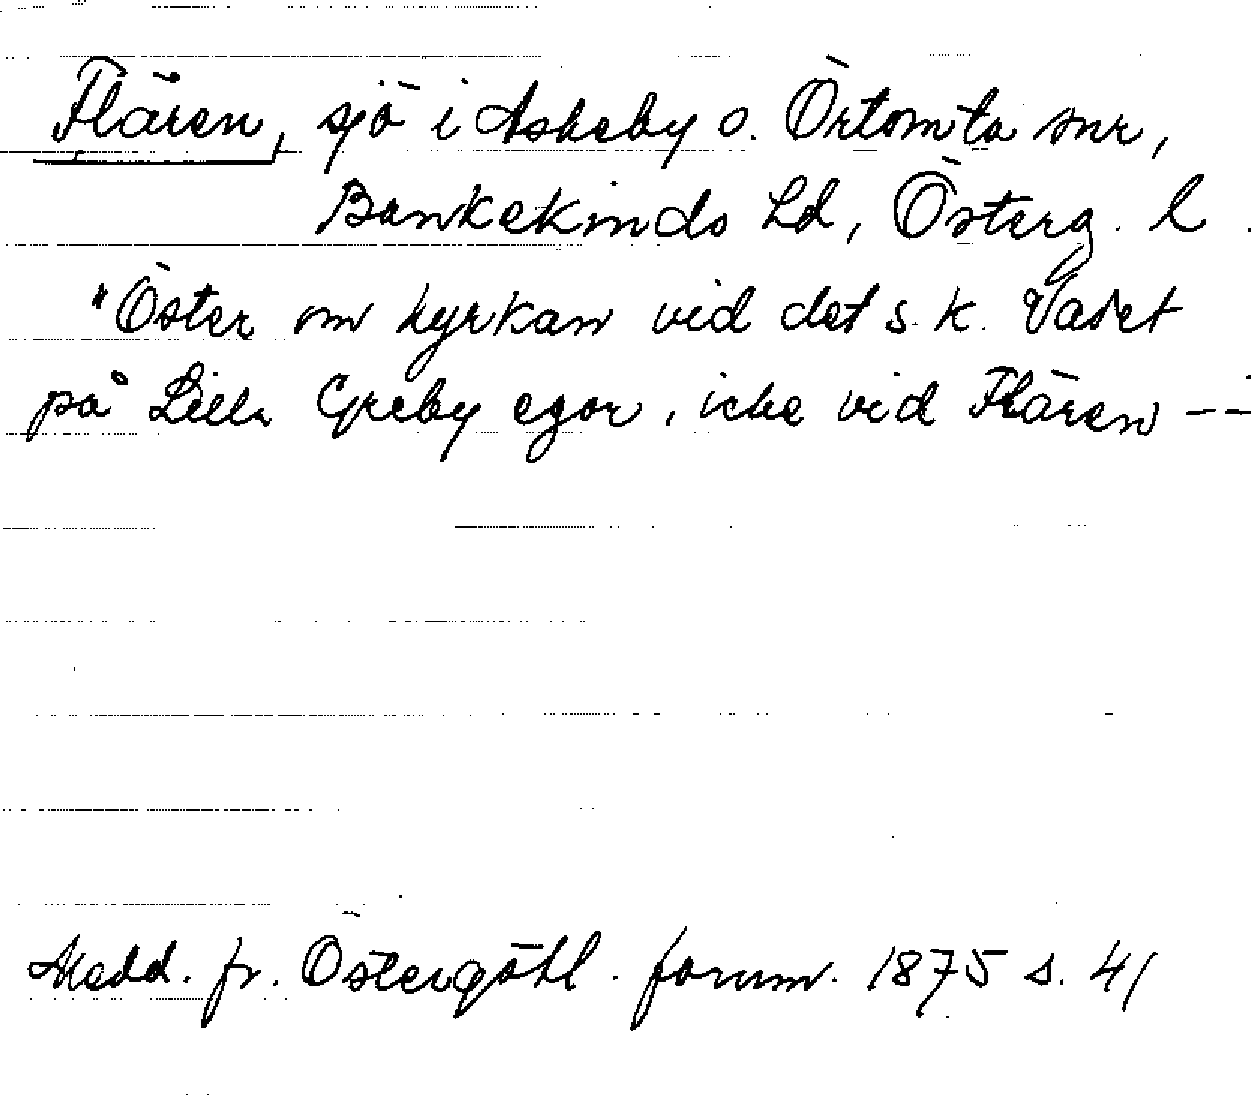 Flären, sjö i Askeby o. Örtomta snr,
Bankekinds hd, Österg. l.
"Öster om kyrkan vid det s. k. Vadet
på Lilla Greby egor, icke vid Flären --
Medd. fr. Östergötl. fornm. 1875 s. 41